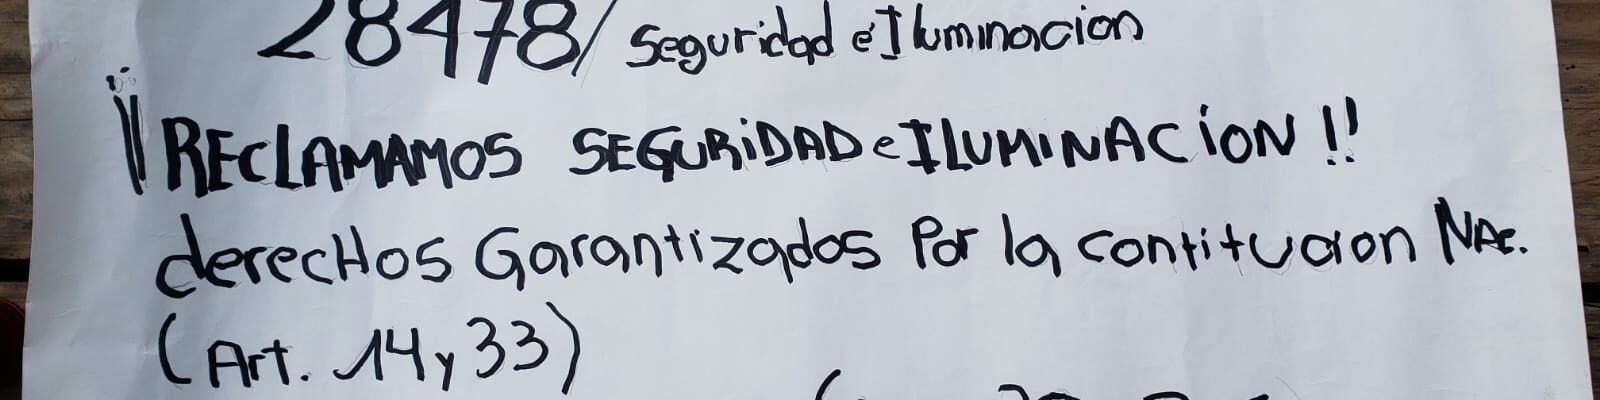 28478/ Seguridad e Iluminacion
¡¡RECLAMAMOS SEGURIDAD e ILUMINACION!!
derecHos Garantizados Por la contitucion NAC.
(Art. 14 y 33)